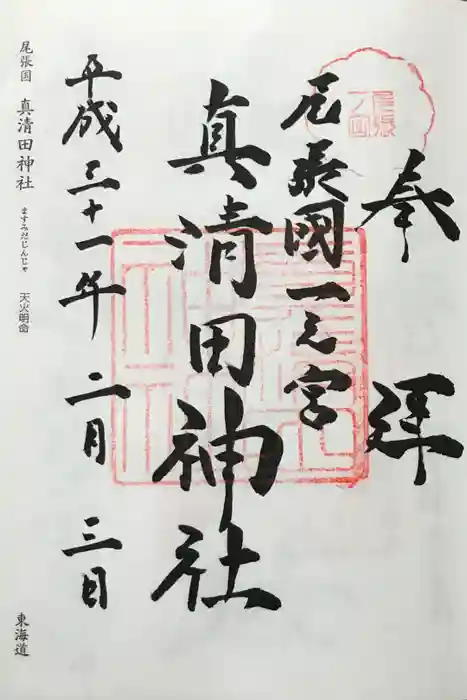 奉拝
尾張國一之宮
真清田神社
平成三十一年二月三日
尾張国 真清田神社 ますみだじんじゃ 天火明命
東海道